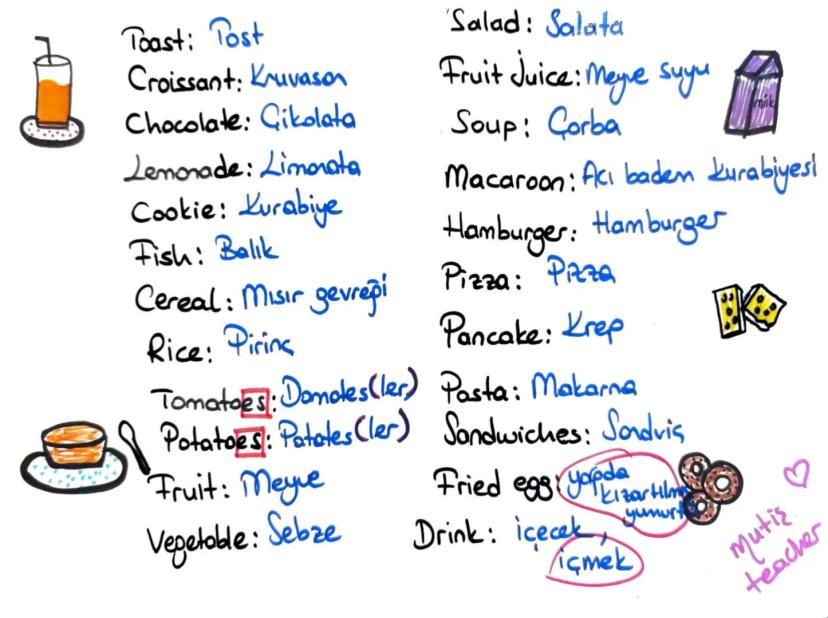 Toast: Tost
Croissant: Kruvasan
Chocolate: Çikolata
Lemonade: Limonata
Cookie: Kurabiye
Fish: Balık
Cereal: Mısır gevreği
Rice: Pirinç
Tomatoes: Domates(ler)
Potatoes: Patates(ler)
Fruit: Meyve
Vegetable: Sebze
Salad: Salata
Fruit Juice: Meyve suyu
Soup: Çorba
Macaroon: Acı badem kurabiyesi
Hamburger: Hamburger
Pizza: Pizza
Pancake: Krep
Pasta: Makarna
Sandwiches: Sandviç
Fried egg: yağda
kızartılm
yumurt
Drink: içecek,
içmek
milk
mutiş
teacher